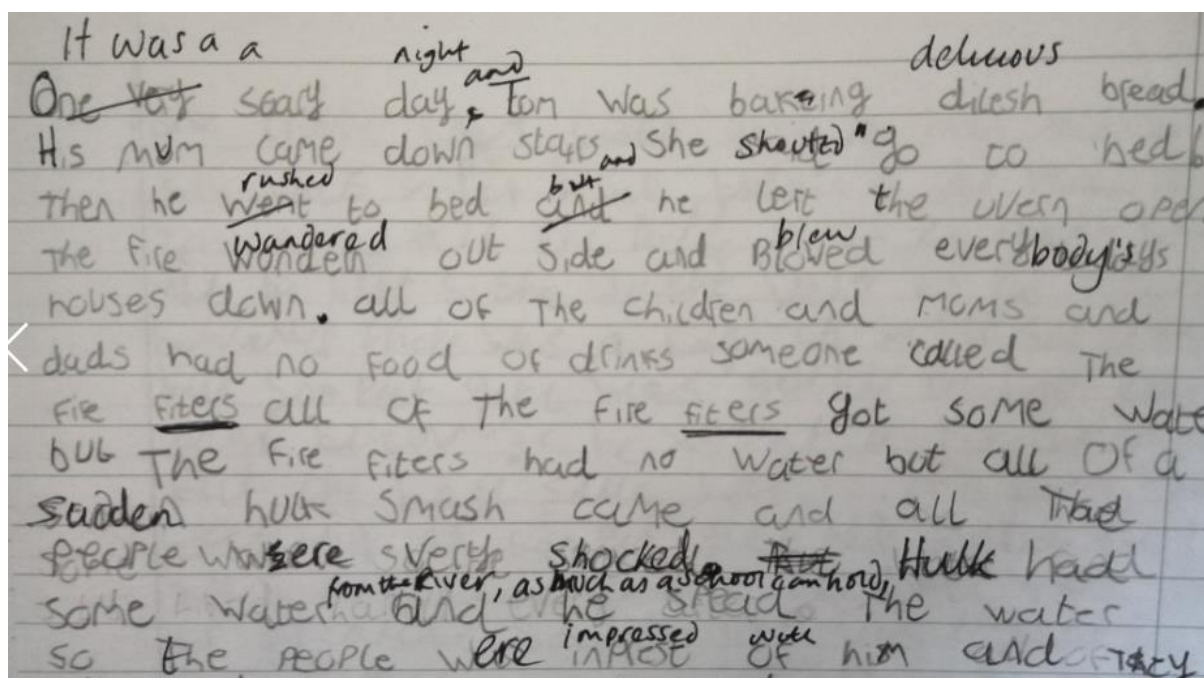 It was a a night and delicuous
One very scary day, tom was bakeing dilesh bread.
His mum came down stairs and She shouted "go to bed.
rushed but
Then he went to bed and he left the uvern ope
wandered blew
The fire wondem out side and Bloved everybody's
houses down. all of The children and moms and
dads had no food or drinks someone called The
fire fiters all of The fire fiters got some wate
but The fire fiters had no water but all of a
sudden hulk smash came and all
people were very shocked. But Hulk had
from the River, as much as a school can hold,
some water and he spead The water
were impressed with
so the people inprest of him and They